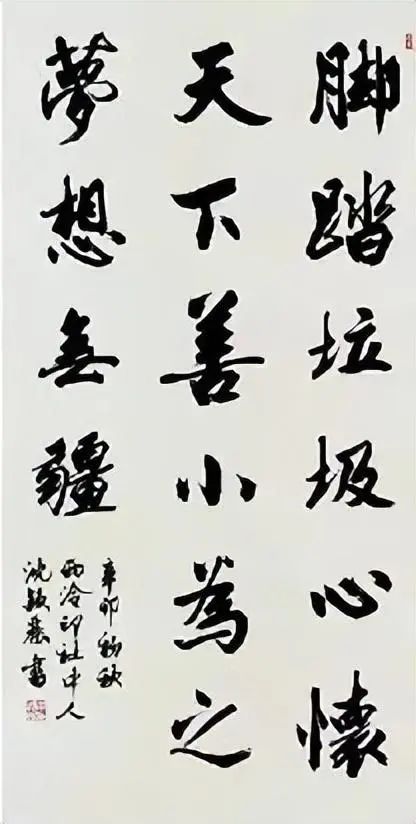 脚踏垃圾心懷
天下善小為之
夢想無疆
辛卯初秋
西泠印社中人
沈書